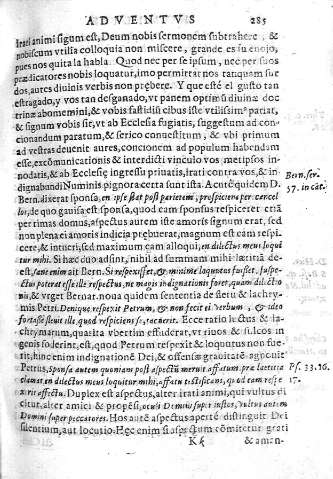 ADVENTVS 285
irati animi signum est, Deum nobis sermonem subtrahere, &
nobiscum vtilia colloquia non miscere, grande es su enojo,
pues nos quita la habla. Quod nec per se ipsum, nec per suos
prædicatores nobis loquatur, imo permittat nos tanquam sur
dos, autes diuinis verbis non præbere. Y que esté el gusto tan
estragado, y vos tan desganado, vt panem optimũ diuinæ doc
trinæ abomemini, & vobis fastidiũ cibus iste vtilissimꝰ pariat,
& signum vobis sit, vt ab Ecclesia fugiatis, suggestum ad con-
cionandum paratum, & serico conuestitum, & vbi primum
ad vestras deuenit aures, concionem ad populum habendam
esse, excõmunicationis & interdicti vinculo vos metipsos in-
nodatis, & ab Ecclesiæ ingressu priuatis, irati contra vos, & in-
dignabundi Numinis pignora certa sunt ista. Acutè quidem D.
Bern. dixerat sponsa,
lor, de quo gauisa est sponsa, quod cum sponsus respiceret eriã
per rimas domus, aspectus cum iste amoris signum erat, sed
non plena, ei amoris indicia præbuerat, magnum est eam respi-
cere, & intueri, sed maximum eam alloqui, en dilectus meus loqui
tur mihi. Si hæc duo adsint, nihil ad summam mihi lætitiã de-
est, sanè enim ait Bern. Si respexisset, & minimè loquutus fuisset, suspe-
ctus poterat esse ille respectus, ne magis indignationis foret, quam dilectio-
nis, & vrget Bernar. noua quidem sententia de fletu & lachry-
mis Petri. Denique respexit Petrum, & non fecit ei verbum, & ideo
fortassè fleuit ille, quod respiciens, tacuerit. Ecce ratio luctus & la-
chrymarum, quas ita vbertim effuderat, vt riuos & sulcos in
genis foderint, est, quod Petrum respexit & loquutus non fue-
rit, hinc enim indignationẽ Dei, & offensæ grauitatẽ agnouit
Petrus, Sponsa autem quoniam post aspectũ meruit affatum, præ lætitia
clamat en dilectus meus loquitur mihi, affatu testificans, quo ad eam respe
xerit affectu. Duplex est aspectus, alter irati animi, qui vultus di
citur, alter amici & propẽsi, oculi Domini super iustos, vultus autem
Domini super peccatores. Hos autẽ aspectus apertè distinguit Dei
silentium, aut locutio. Hæc enim si aspectum cõmitetur grati
Kk & aman-
Bern. ser.
57. in cát.
Ps. 33. 16.
17.